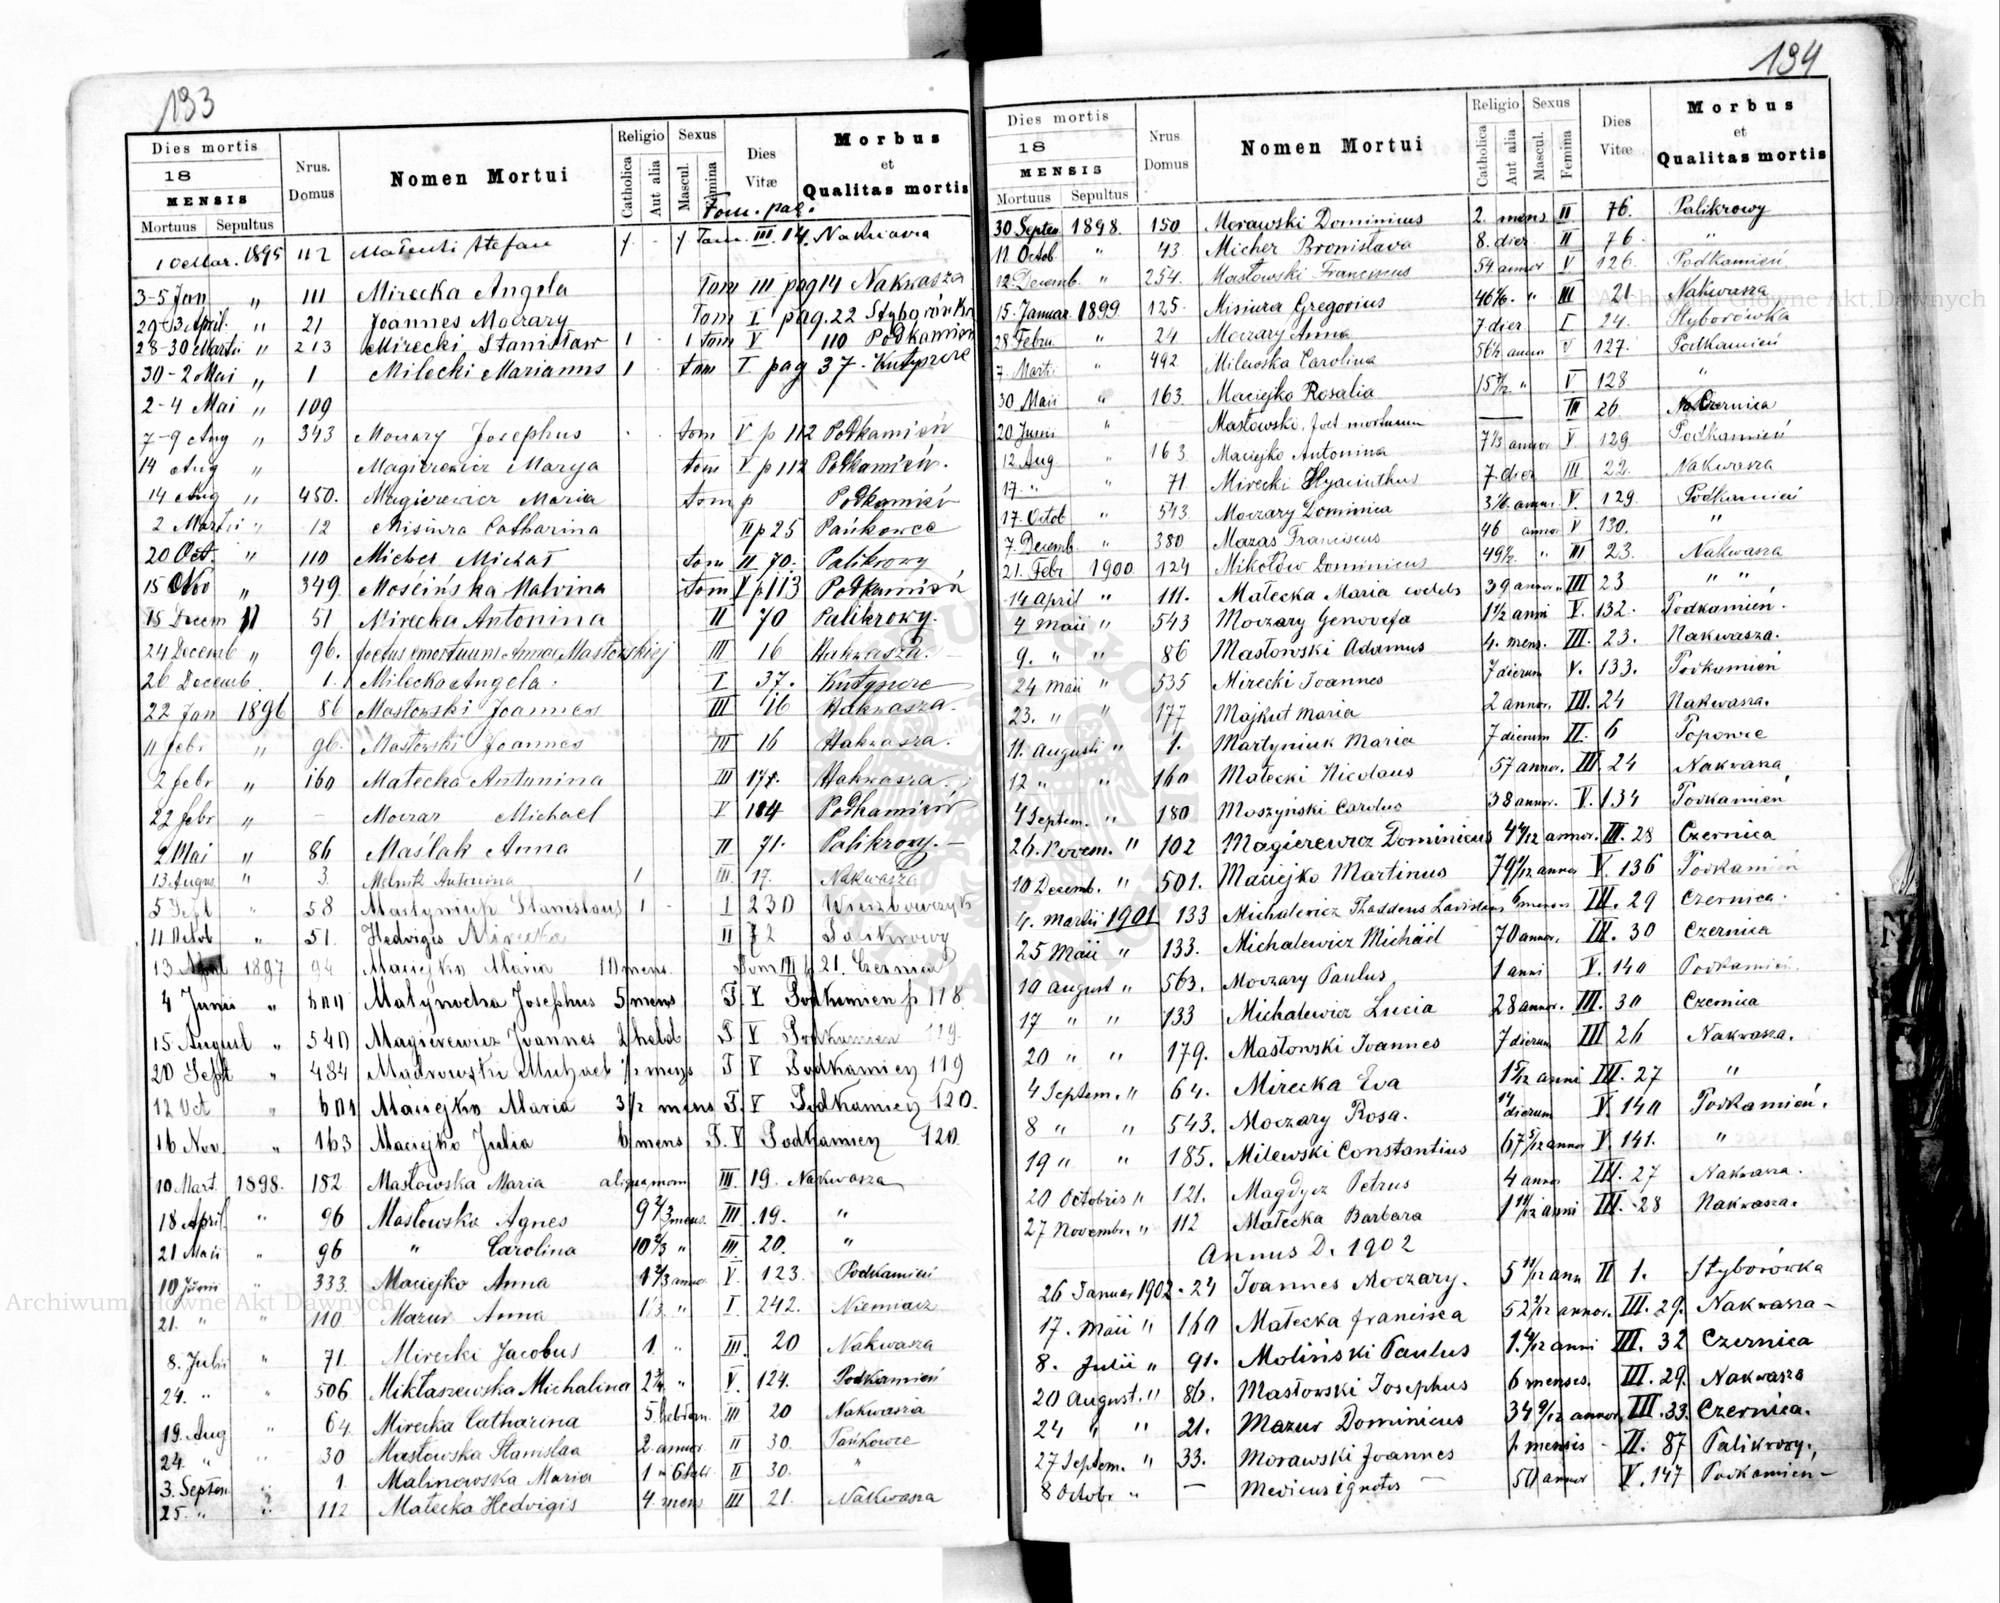 133
Dies mortis
18
MENSIS
Mortuus Sepultus
Nrus. Domus
Nomen Mortui
Religio
Catholica
Aut alia
Sexus
Mascul.
Femina
Dies Vitæ
Morbus
et
Qualitas mortis
Tom. pag.
Mar. 1895 112 Stefan Tom. III. 14. Nakwasza
3-5 Jan " 111 Mirecka Angela Tom III pag 14 Nakwasza
29-3 April. " 21 Joannes Moczary Tom I pag. 22 Styborówka
28-30 Martii " 213 Mirecki Stanisław 1 1 Tom V 110 Podkamień
30-2 Mai " 1 Milecki Marianus 1 tom I pag 37. Kutyszcze
2-4 Mai " 109
7-9 Aug " 343 Moczary Josephus tom V p 112 Podkamień
14 Aug " Magierewicz Marya tom V p 112 Podkamień.
14 Aug " 450. Magierewicz Maria tom p Podkamień
2 Martii " 12 Misiura Catharina II p 25 Pańkowce
20 Oct. " 110 Micher Michał tom II 70. Palikrowy
15 Nov " 349. Mościńska Malvina tom V p 113 Podkamień
15 Decem 11 51 Mirecka Antonina II 70 Palikrowy.
24 Decemb " 96. foetus mortuum Annae Masłowskiej III 16 Nakwasza.
26 Decemb. 1. Milecka Angela. I 37. Kutyszcze
22 Jan 1896 86 Masłowski Joannes III 16 Nakwasza.
11 febr " 96. Masłowski Joannes III 16 Nakwasza.
2 febr " 160 Małecka Antonina III 17. Nakwasza.
22 febr " - Moczar Michael V 114 Podkamień
2 Mai " 86 Maślak Anna II 71. Palikrowy. -
13 Augus " 3. Melnik Antonina 1 III. 17. Nakwasza
5 Sept " 58 Martyniuk Stanislaus 1 - I 230 Wierzbowczyk
11 Octob " 51. Hedvigis Mirecka II 72 Palikrowy
13 1897 94 Maciejko Maria 10 mens. Tom III p 21. Czernica
4 Junii " Josephus 5 mens T. V Podkamien p 118
15 August " 540 Magierewicz Joannes 2 hebd T V Podkamien 119.
20 Sept " 484 Michael mens T V Podkamien 119
12 Oct " Maciejko Maria 3 1/2 mens T. V Podkamien 120.
16 Nov. " 163 Maciejko Julia 6 mens T. V Podkamien 120.
10 Mart. 1898. 182 Masłowska Maria III. 19. Nakwasza
18 April. " 96 Masłowska Agnes 9 2/3 mens. III .19. "
21 Maii " 96 " Carolina 10 2/3 " III. 20. "
10 Junii " 333. Maciejko Anna 1 2/3 annor V. 123. Podkamień
21. " " 110 Mazur Anna 1/3. " I. 242. Niemiacz
8. Julii " 71 Mirecki Jacobus 1. " III. 20 Nakwasza
24. " " 506 Mikłaszewska Michalina 2 3/4 " V. 124. Podkamień
19. Aug " 64. Mirecka Catharina 5. hebdom. III 20 Nakwasza
24. " " 30 Masłowska Stanislaa 2. annor. II 30. Pańkowce
3. Septem " 1 Malinowska Maria II 30. "
25. " " 112 Małecka Hedvigis 4. mens III 21. Nakwasza
134
Dies mortis
18
MENSIS
Mortuus Sepultus
Nrus. Domus
Nomen Mortui
Religio
Catholica
Aut alia
Sexus
Mascul.
Femina
Dies Vitæ
Morbus
et
Qualitas mortis
30 Septem 1898. 150 Morawski Dominicus 2. mens II 76. Palikrowy
11 Octob " 43 Micher Bronisłava 8. dier II 76. "
12. Decemb. " 254. Masłowski Franciscus 54 annor V 126. Podkamień
15. Januar. 1899 125. Misiura Gregorius III 21 Nakwasza
28 Febru. " 24 Moczary Anna 7 dier I 24. Styborówka
7. Martii " 492 Milewska Carolina 56 1/2 annor V 127. Podkamień
30 Maii " 163. Maciejko Rosalia V 128 "
20 Junii " Masłowski. foet mortuum III 26 Czernica
12 Aug " 163 Maciejko Antonina 7 1/3 annor V 129 Podkamień
17. " " 71 Mirecki Hyacinthus 7 dier III 22. Nakwasza
17. Octob " 543 Moczary Dominica V. 129. Podkamień
7. Decemb " 380 Mazas Franciscus 46 annor V 130. "
21. Febr. 1900 124 Mikołów Dominicus III 23. Nakwasza
14 April " 111. Małecka Maria 39 annor. III 23 " "
4 Maii " 543 Moczary Genovefa 1 1/2 anni V. 132. Podkamień.
9. " " 86 Masłowski Adamus 4. mens. III. 23. Nakwasza.
24 Maii " 535 Mirecki Ioannes 7 dierum V. 133. Podkamień
23. " " 177 Majkut Maria 2 annor. III. 24 Nakwasza.
11. Augusti " 1. Martyniuk Maria 7 dierum II. 6 Popowce
12 " " 160 Małecki Nicolaus 57 annor. III. 24 Nakwasza
4 Septem. " 180 Moszyński Carolus 38 annor. V. 134 Podkamień
26. Novem. " 102 Magierewicz Dominicus annor. III. 28 Czernica
10 Decemb. " 501. Maciejko Martinus annor V. 136 Podkamień
4. Martii 1901 133 Michalewicz Thaddeus Ladislaus 6 menses III. 29 Czernica.
25 Maii " 133. Michalewicz Michäel 70 annor. III. 30 Czernica
10 August " 563. Moczary Paulus 1 anni V. 140 Podkamień.
17 " " 133 Michalewicz Lucia 28 annor. III. 30 Czernica
20 " " 179. Masłowski Ioannes 7 dierum III 26 Nakwasza.
4 Septem. " 64. Mirecka Eva anni III. 27 "
8 " " 543. Moczary Rosa. 14 dierum V. 140 Podkamień.
19 " " 185. Milewski Constantius 67 5/12 annor V. 141. "
20 Octobris " 121. Magdycz Petrus 4 annor III. 27 Nakwasza.
27 Novembr. " 112 Małecka Barbara anni III. 28 Nakwasza.
Annus D. 1902
26 Januar 1902. 24 Ioannes Moczary. 5 11/12 ann II 1. Styborówka
17. Maii " 160 Małecka francisca 52 annor. III. 29. Nakwasza -
8. Julii " 91. Moliński Paulus anni III. 32 Czernica
20 August. " 86. Masłowski Iosephus 6 menses. III. 29. Nakwasza
24 " " 21. Mazur Dominicus 34 9/12 annor III. 33. Czernica.
27 Septem. " 33. Morawski Joannes mensis - II. 87 Palikrowy.
8 Octobr " - ignotus - 50 annor V. 147 Podkamień -
Archiwum Główne Akt Dawnych
Archiwum Główne Akt Dawnych